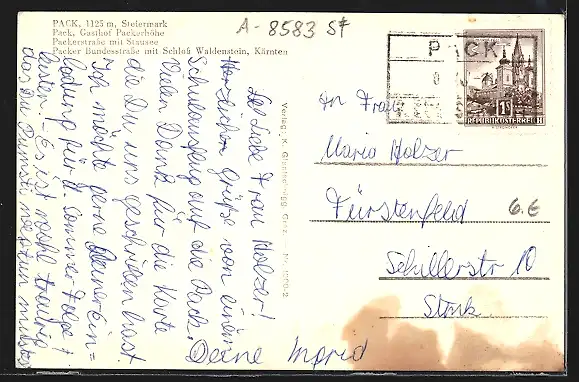 PACK, 1125 m, Steiermark
Pack, Gasthof Packerhöhe
Packerstraße mit Stausee
Packer Bundesstraße mit Schloß Waldenstein, Kärnten
A-8583 St
Liebe Frau Holzer!
Herzlichen Grüße von einem
Schulausflug auf die Pack.
Vielen Dank für die Karte
die Du uns geschrieben hast.
Ich möchte gerne Deiner Ein=
ladung für d. Sommer Folge
leisten. Es ist recht traurig
das Du
Deine Ingrid
Verlag: K. Graz
PACK
1 S
REPUBLIK ÖSTERREICH
An Frau
Maria Holzer
Fürstenfeld
6.€
Schillerstr 10
Stmk.